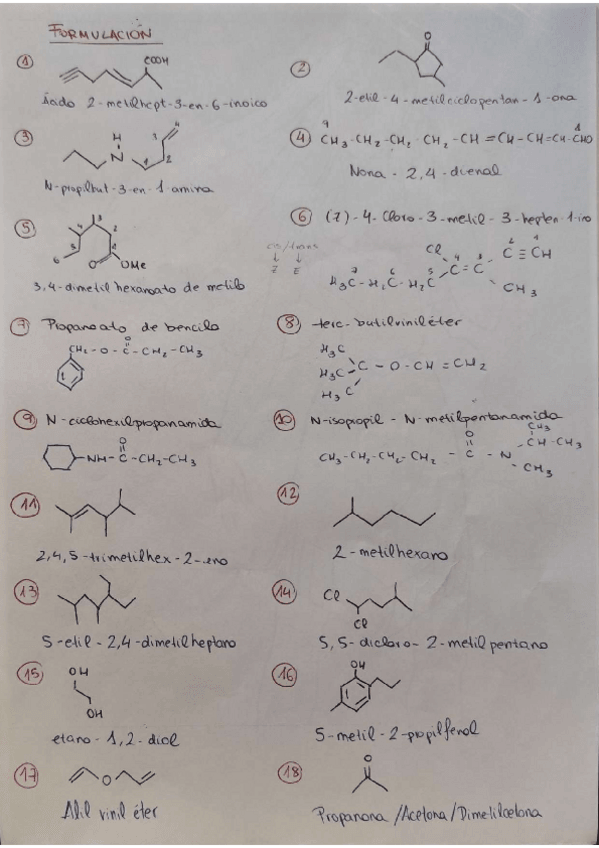 FORMULACIÓN
① COOH
Ácido 2-metilhept-3-en-6-inoico
② O
2-etil-4-metilciclopentan-1-ona
③ H N 1 2 3 4
N-propilbut-3-en-1-amina
④ 9 1
CH3-CH2-CH2-CH2-CH=CH-CH=CH-CHO
Nona-2,4-dienal
⑤ 6 5 4 3 2 1
O OMe
3,4-dimetil hexanoato de metilo
cis/trans
↓ ↓
Z E
⑥ (Z)-4-Cloro-3-metil-3-hepten-1-ino
Cl 4 3 2 1
C=C C≡CH
7 6 5
H3C-H2C-H2C CH3
⑦ Propanoato de bencilo
O
CH2-O-C-CH2-CH3
⑧ terc-butilviniléter
H3C
H3C C-O-CH=CH2
H3C
⑨ N-ciclohexilpropanamida
O
NH-C-CH2-CH3
⑩ N-isopropil-N-metilpentanamida
CH3
O CH-CH3
CH3-CH2-CH2-CH2-C-N
CH3
⑪
2,4,5-trimetilhex-2-eno
⑫
2-metilhexano
⑬
5-etil-2,4-dimetilheptano
⑭ Cl
Cl
5,5-dicloro-2-metilpentano
⑮ OH
OH
etano-1,2-diol
⑯ OH
5-metil-2-propilfenol
⑰ O
Alil vinil éter
⑱ O
Propanona/Acetona/Dimetilcetona